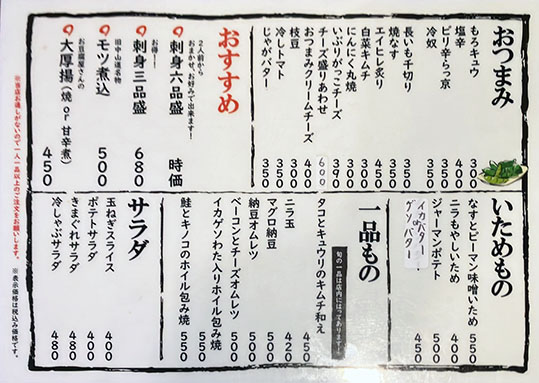 おつまみ
もろキュウ 300
塩辛 400
ピリ辛らっ京 350
冷奴 350
長いも千切り 350
焼なす 350
エイヒレ炙り 450
白菜キムチ 300
にんにく丸焼 300
いぶりがっこチーズ 390
チーズ盛りあわせ 600
おつまみクリームチーズ 400
枝豆 300
冷しトマト 350
じゃがバター 350
おすすめ
2人前から
おまかせ、お好みで出来ます!
刺身六品盛 時価
お得!
刺身三品盛 680
旧中山道名物
モツ煮込 500
お豆腐屋さんの
大厚揚(焼 or 甘辛煮) 450
いためもの
なすとピーマン味噌いため 550
ニラもやしいため 500
ジャーマンポテト 500
イカバター
ゲソバター 400
一品もの
旬の一品は店内にはってあります!
タコとキュウリのキムチ和え 450
ニラ玉 420
マグロ納豆 500
納豆オムレツ 500
ベーコンとチーズオムレツ 500
イカゲソわた入りホイル包み焼 550
鮭とキノコのホイル包み焼 550
サラダ
玉ねぎスライス 400
ポテトサラダ 400
きまぐれサラダ 480
冷しゃぶサラダ 480
※当店お通しがないので一人一品以上のご注文をお願いします。
※表示価格は税込み価格です。